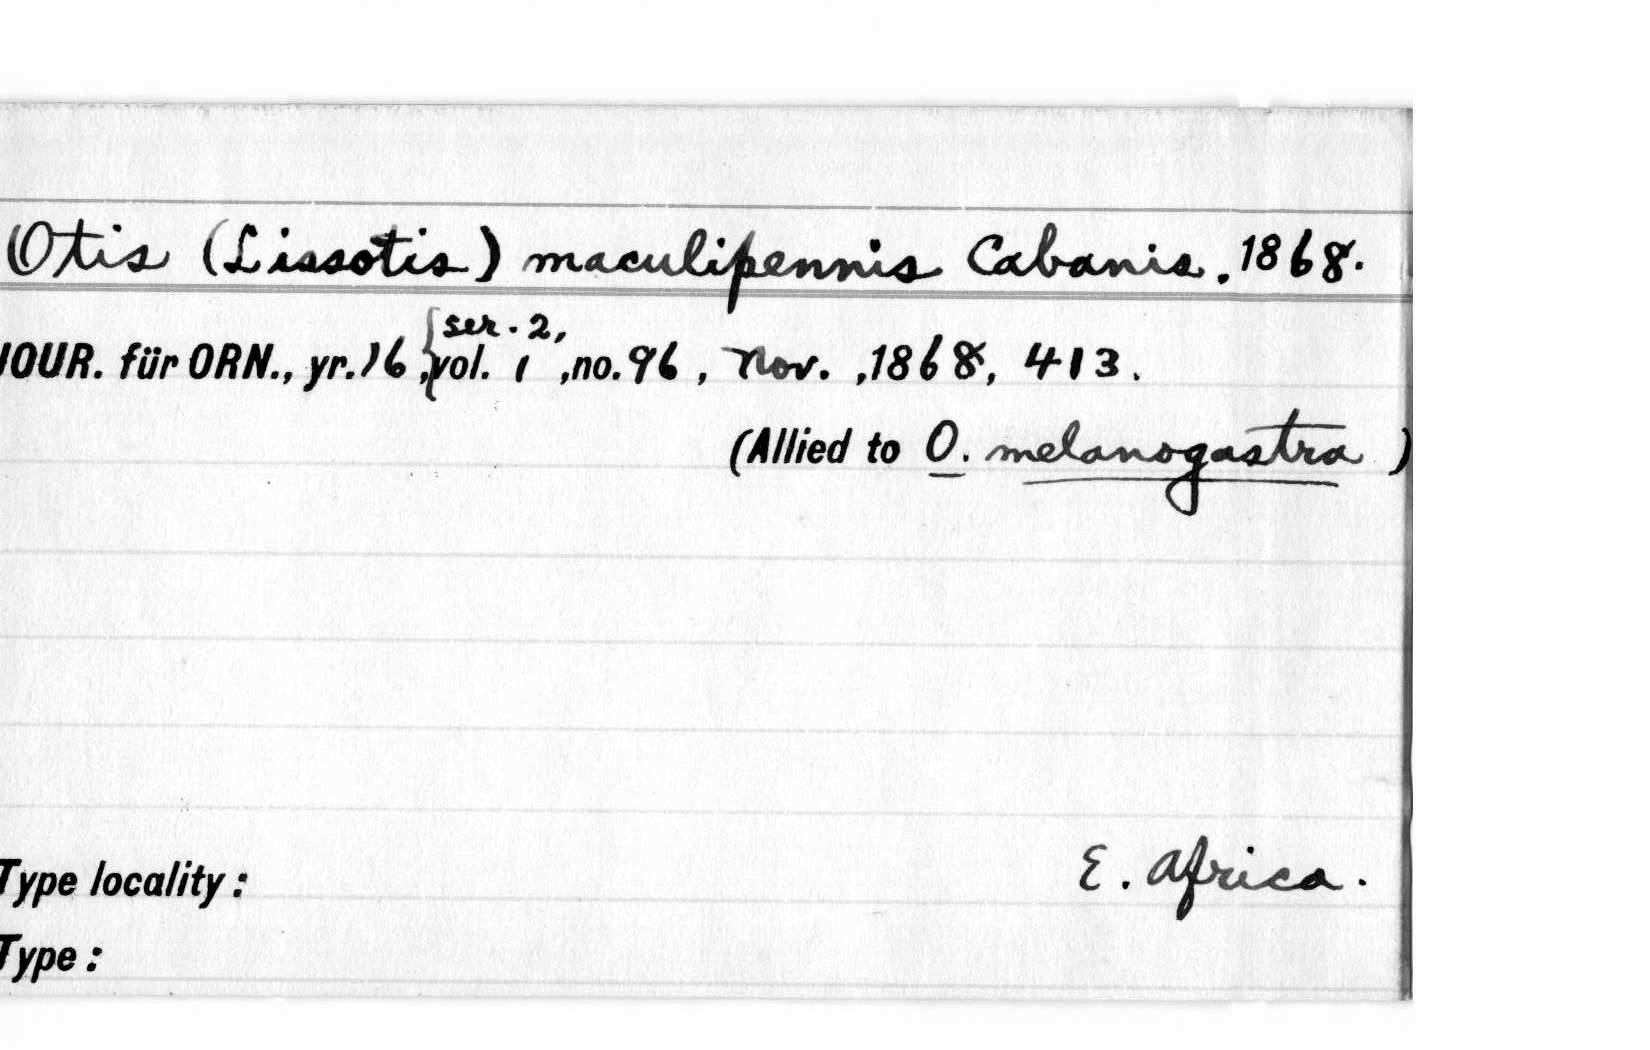 Otis (Lissotis) maculipennis Cabanis, 1868.
JOUR. für ORN., yr. 16, { ser. 2,
vol. 1, no. 96, Nov., 1868, 413.
(Allied to O. melanogastra )
Type locality: E. Africa.
Type: